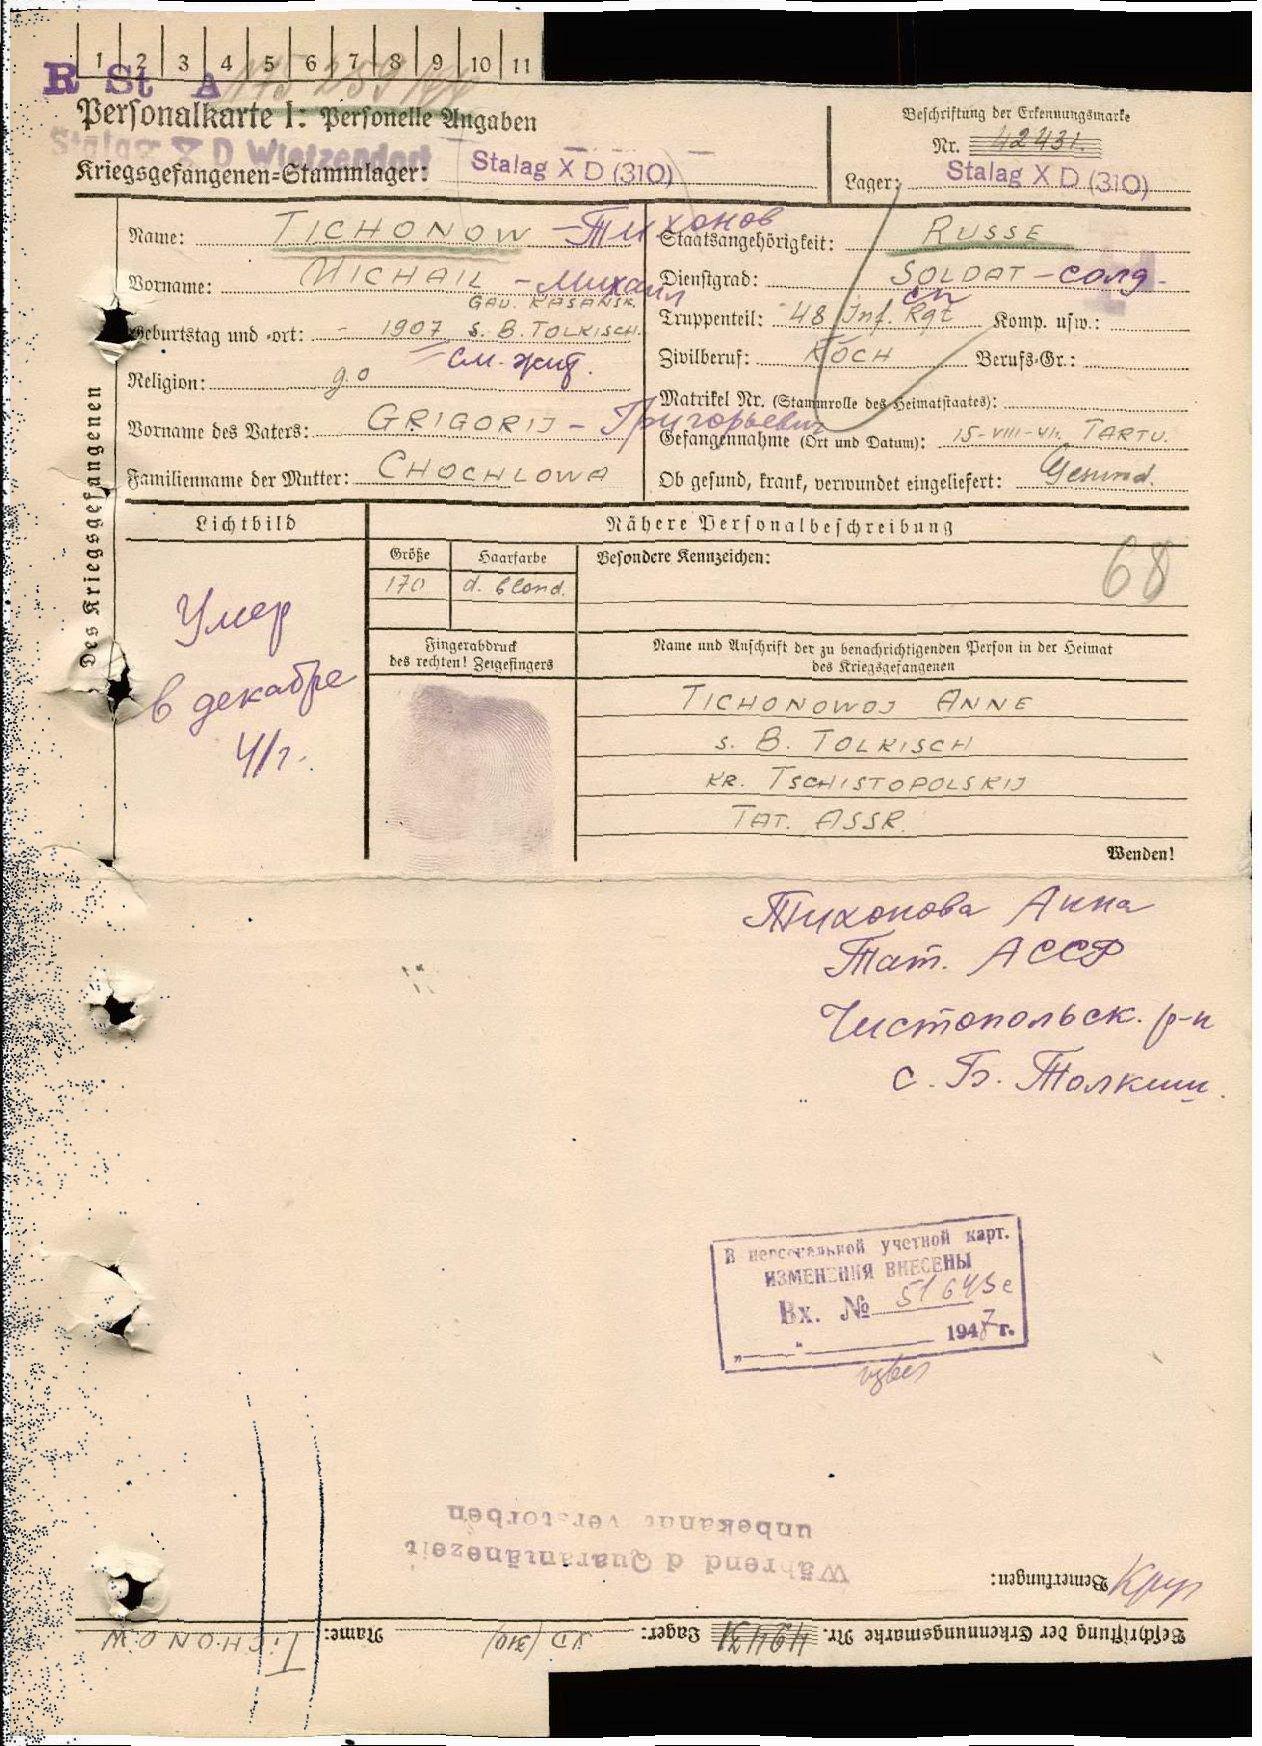 1 2 3 4 5 6 7 8 9 10 11
R St A
Personalkarte I: Personelle Angaben
Beschriftung der Erkennungsmarke
Nr. 42431.
Stalag X D Wietzendorf
Kriegsgefangenen=Stammlager: Stalag X D (310)
Lager: Stalag X D (310)
Des Kriegsgefangenen
Name: TICHONOW – Тихонов
Vorname: MICHAIL – Михаил
GAU. KASANSK.
Geburtstag und =ort: - 1907 s. B. TOLKISCH.
см. жит.
Religion: g.o
Vorname des Vaters: GRIGORIJ – Григорьевич
Familienname der Mutter: CHOCHLOWA
Staatsangehörigkeit: RUSSE
Dienstgrad: SOLDAT – солд-
сп
Truppenteil: 48 Inf. Rgt Komp. usw.:
Zivilberuf: KOCH Berufs=Gr.:
Matrikel Nr. (Stammrolle des Heimatstaates):
Gefangennahme (Ort und Datum): 15-VIII-41. TARTU.
Ob gesund, krank, verwundet eingeliefert: Gesund.
Lichtbild
Nähere Personalbeschreibung
Größe Haarfarbe Besondere Kennzeichen:
170 d. blond.
68
Умер
в декабре
41г.
Fingerabdruck
des rechten! Zeigefingers
Name und Anschrift der zu benachrichtigenden Person in der Heimat
des Kriegsgefangenen
TICHONOWOJ ANNE
s. B. TOLKISCH
KR. TSCHISTOPOLSKIJ
TAT. ASSR.
Wenden!
Тихонова Анна
Тат. АССР
Чистопольск. р-н
с. Б. Толкиш.
В персональной учетной карт.
ИЗМЕНЕНИЯ ВНЕСЕНЫ
Вх. №
„ “ 1947 г.
Während d Quarantänezeit
unbekannt verstorben
Bemerkungen:
Beschriftung der Erkennungsmarke Nr. 42431 Lager: XD (310) Name: TICHONOW